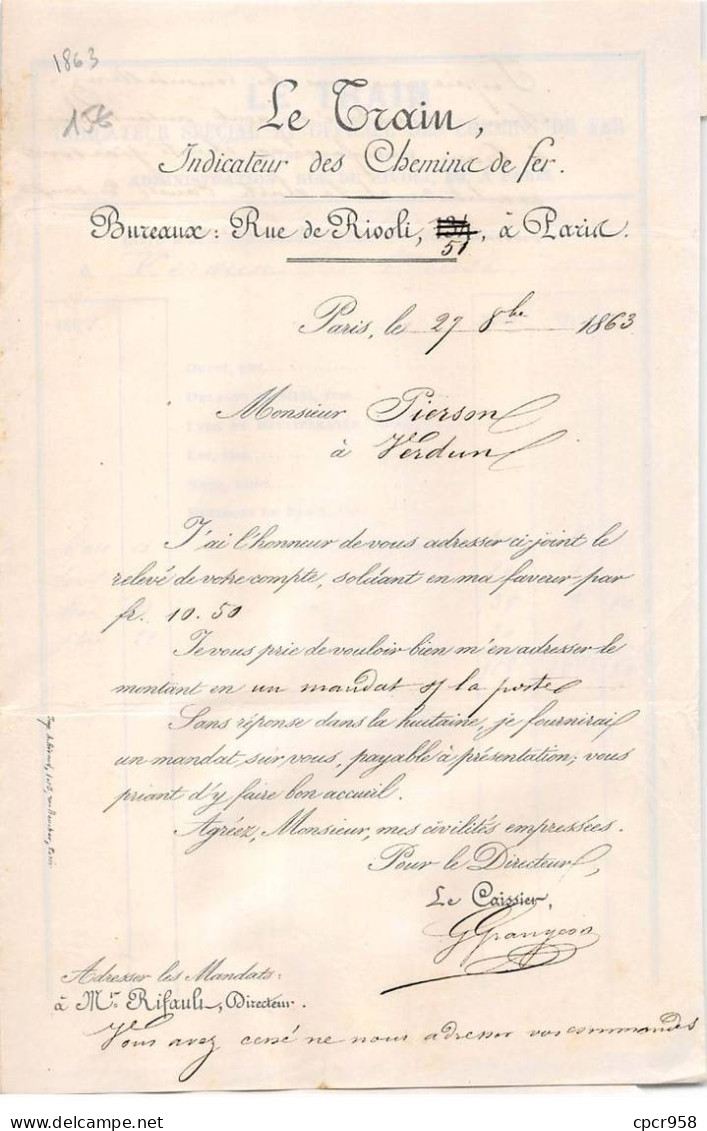 1863
Le Train,
Indicateur des Chemins de fer.
Bureaux: Rue de Rivoli, 51, à Paris.
Paris, le 27 8bre 1863
Monsieur Pierson
à Verdun
J'ai l'honneur de vous adresser ci-joint le
relevé de votre compte, soldant en ma faveur par
fr. 10.50
Je vous prie de vouloir bien m'en adresser le
montant en un mandat s/ la poste
Sans réponse dans la huitaine, je fournirai
un mandat sur vous, payable à présentation; vous
priant d'y faire bon accueil.
Agréez, Monsieur, mes civilités empressées.
Pour le Directeur,
Le Caissier,
Adresser les Mandats:
à Mr. Rifault, Directeur.
Vous avez cessé ne nous adresser vos commandes
LE TRAIN
cpcr958